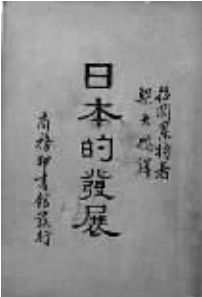 日本的發展
梁大鵬譯
商務印書館發行